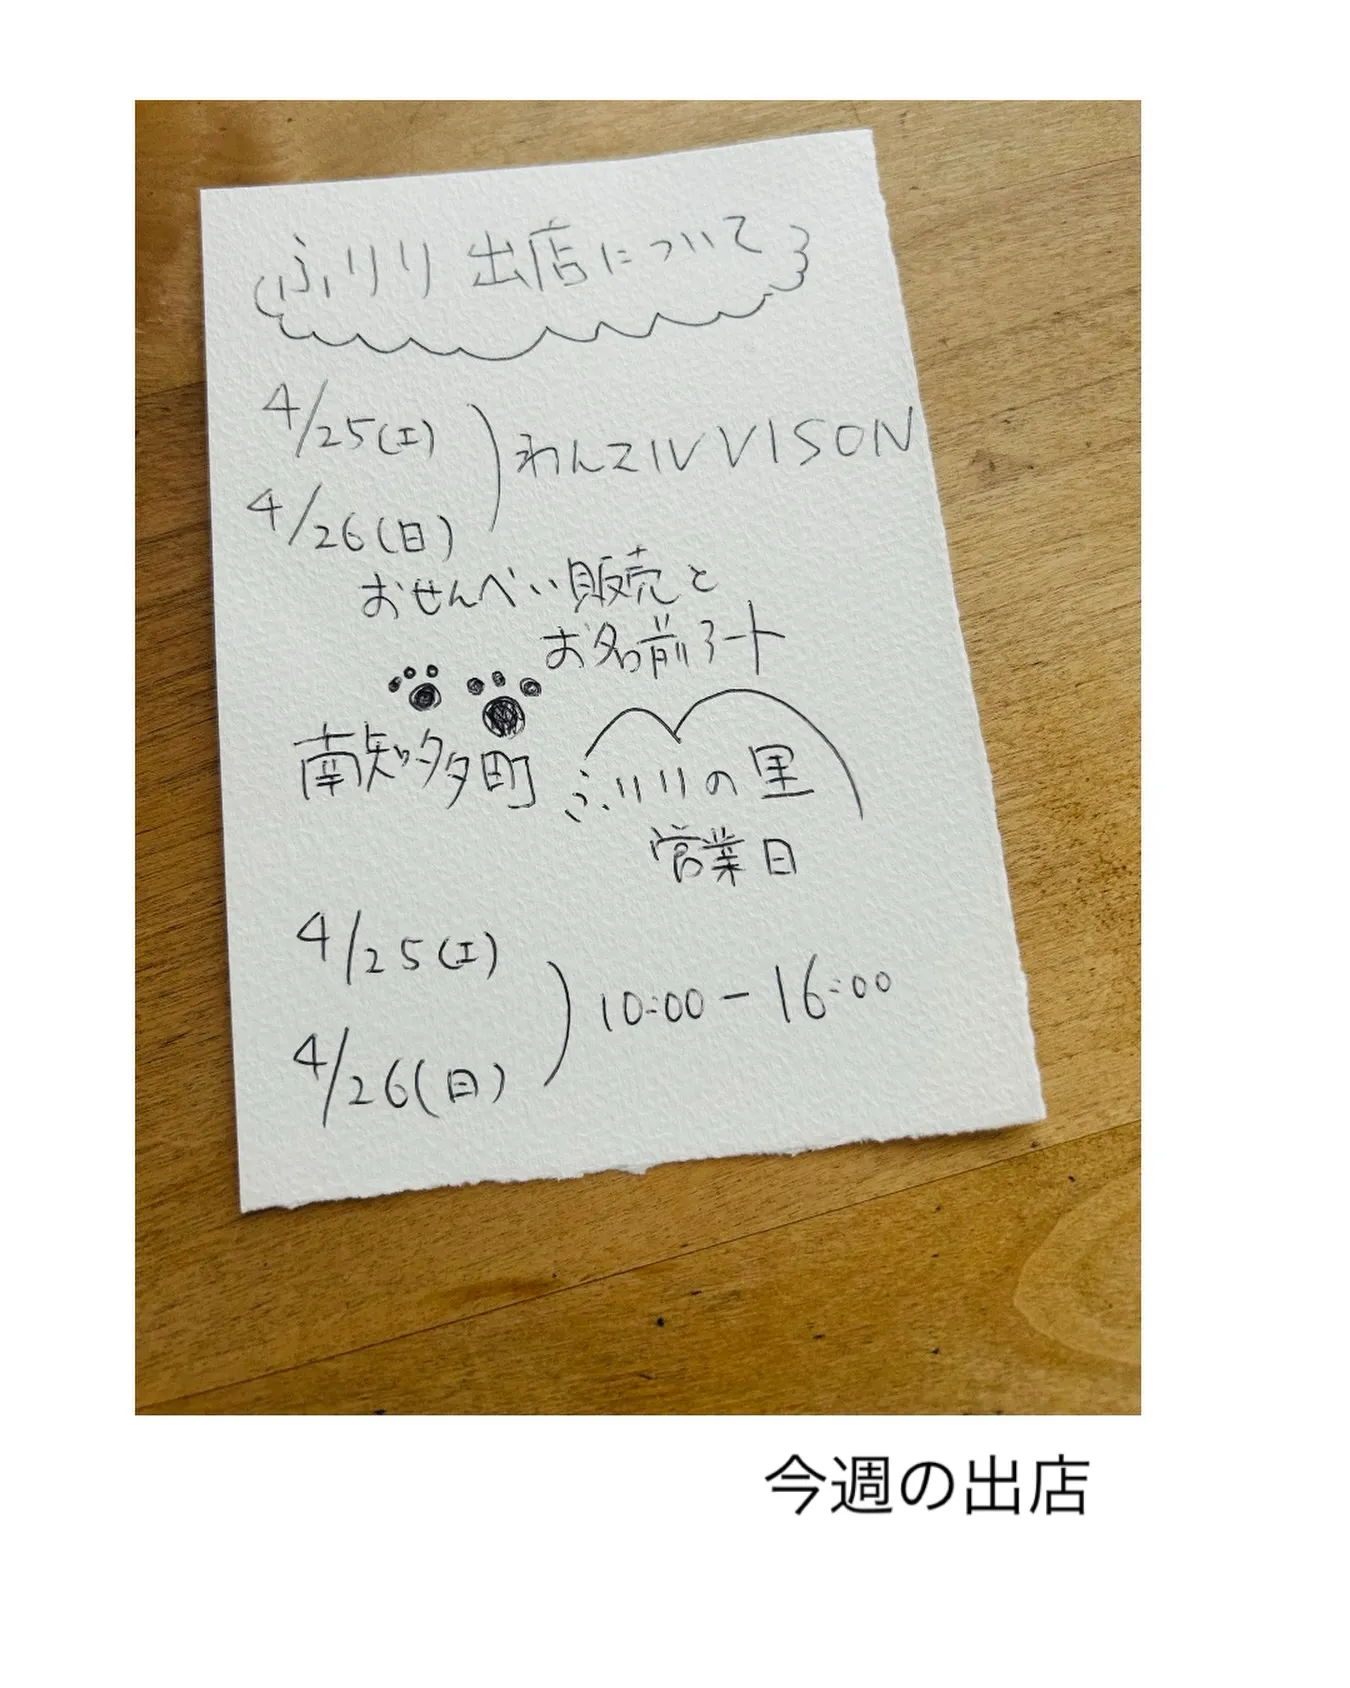 ふりり 出店について
4/25(土)
4/26(日)
わんマルVISON
おせんべい販売と
お名前アート
南知多町
ふりりの里
営業日
4/25(土)
4/26(日)
10:00-16:00
今週の出店